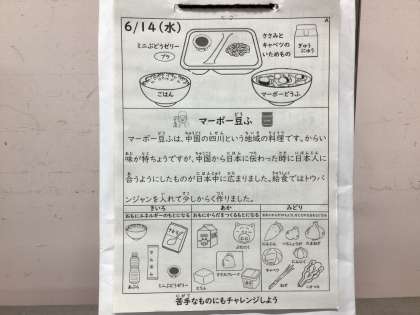 6/14(水)
A
ミニぶどうゼリー
プラ
ささみと
キャベツの
いためもの
ぎゅう
にゅう
ごはん
マーボーどうふ
マーボー豆ふ
マーボー豆ふは、中国の四川という地域の料理です。からい
味が特ちょうですが、中国から日本に伝わった時に日本人に
合うようにしたものが日本中に広まりました。給食ではトウバ
ンジャンを入れて少しからく作りました。
きいろ
あか
みどり
おもにエネルギーのもとになる
おもにからだをつくるもとになる
あぶら
ミニぶどうゼリー
ぶたにく
とうふ
にんじん
たまねぎ
キャベツ
にんにく
ねぎ
苦手なものにもチャレンジしよう